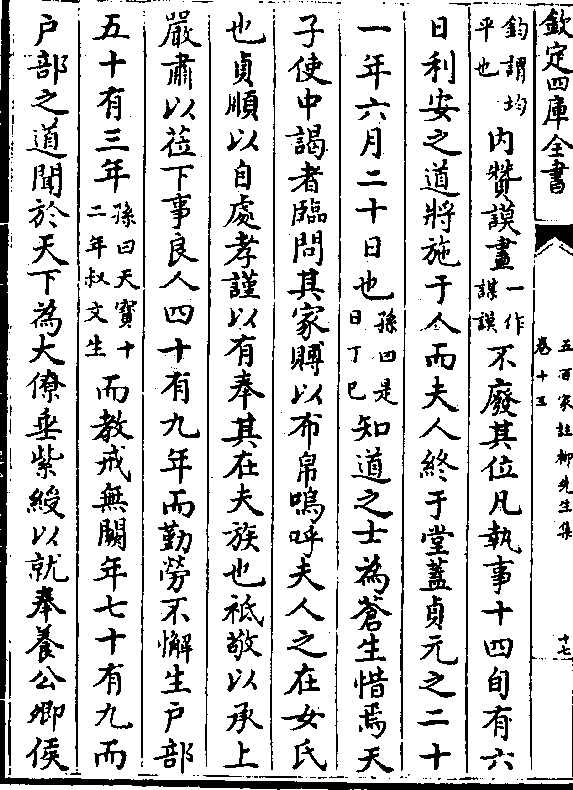 欽定四庫全書
五百家註柳先生集
卷十三
十七
鈞謂均
平也
内贊謨畫
一作
謀謨
不廢其位凡執事十四旬有六
日利安之道將施于人而夫人終于堂蓋貞元之二十
一年六月二十日也
孫曰是
日丁巳
知道之士為蒼生惜焉天
子使中謁者臨問其家賻以布帛嗚呼夫人之在女氏
也貞順以自處孝謹以有奉其在夫族也祗敬以承上
嚴肅以莅下事良人四十有九年而勤勞不懈生戸部
五十有三年
孫曰天寶十
二年叔文生
而教戒無闕年七十有九而
戸部之道聞於天下為大僚垂紫綬以就奉養公卿侯